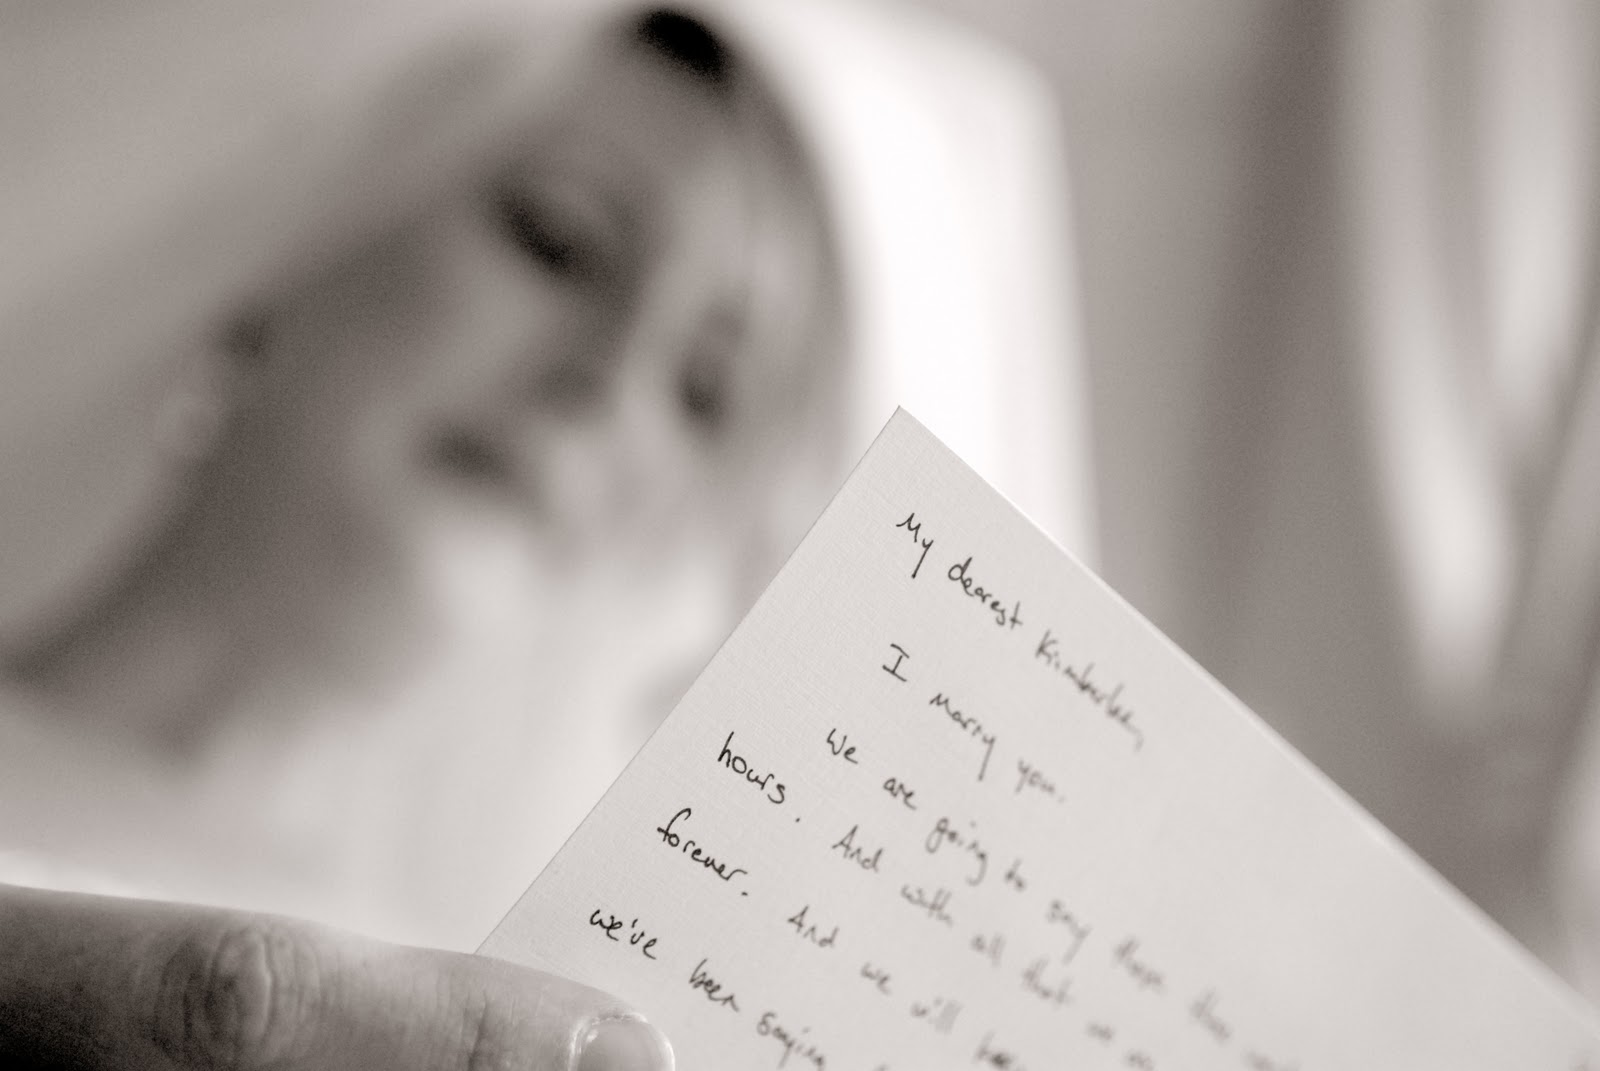 My dearest Kimberlee,
I marry you.
We are going to say these
hours. And with all that we
forever. And we will
we've been saying